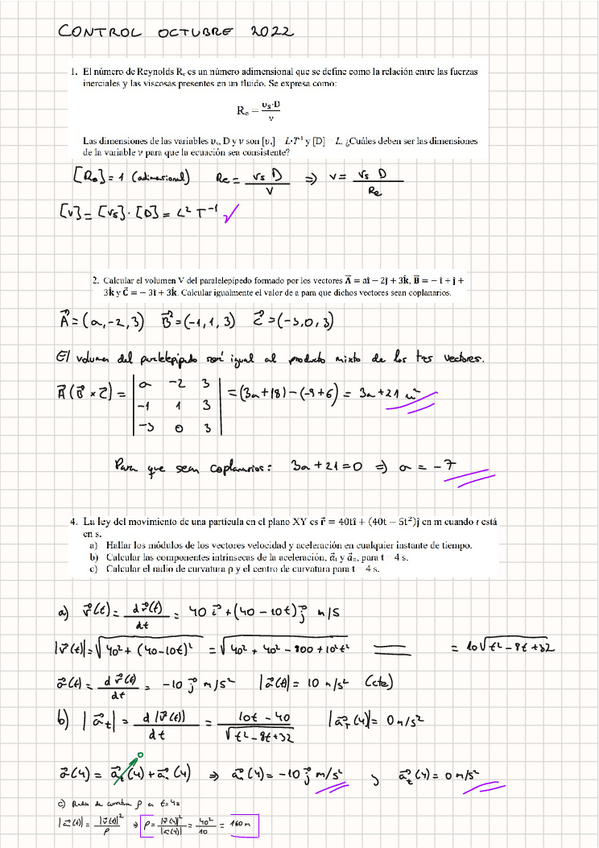 CONTROL OCTUBRE 2022
1. El número de Reynolds Re es un número adimensional que se define como la relación entre las fuerzas
inerciales y las viscosas presentes en un fluido. Se expresa como:
Re = vs·D / v
Las dimensiones de las variables vs, D y v son [vs] L·T⁻¹ y [D] L. ¿Cuáles deben ser las dimensiones
de la variable v para que la ecuación sea consistente?
[Re] = 1 (adimensional) Re = vs D / v ⇒ v = vs D / Re
[v] = [vs] · [D] = L² T⁻¹ ✓
2. Calcular el volumen V del paralelepípedo formado por los vectores A⃗ = aî − 2ĵ + 3k̂, B⃗ = − î + ĵ +
3k̂ y C⃗ = − 3î + 3k̂. Calcular igualmente el valor de a para que dichos vectores sean coplanarios.
A⃗ = (a, -2, 3) B⃗ = (-1, 1, 3) C⃗ = (-3, 0, 3)
El volumen del paralelepípedo será igual al producto mixto de los tres vectores.
A⃗ (B⃗ × C⃗) = | a -2 3 | = (3a + 18) - (-9 + 6) = 3a + 21 u³
| -1 1 3 |
| -3 0 3 |
Para que sean coplanarios: 3a + 21 = 0 ⇒ a = -7
4. La ley del movimiento de una partícula en el plano XY es r⃗ = 40tî + (40t − 5t²)ĵ en m cuando t está
en s.
a) Hallar los módulos de los vectores velocidad y aceleración en cualquier instante de tiempo.
b) Calcular las componentes intrínsecas de la aceleración, a⃗t y a⃗n, para t 4 s.
c) Calcular el radio de curvatura ρ y el centro de curvatura para t 4 s.
a) v⃗(t) = dr⃗(t) / dt = 40 i⃗ + (40 - 10t) j⃗ m/s
|v⃗(t)| = √(40² + (40 - 10t)²) = √(40² + 40² - 800 + 10²t²) = 10√(t² - 8t + 32)
a⃗(t) = dv⃗(t) / dt = -10 j⃗ m/s² |a⃗(t)| = 10 m/s² (cte)
b) |a⃗t| = d|v⃗(t)| / dt = 10t - 40 / √(t² - 8t + 32) |a⃗t(4)| = 0 m/s²
a⃗(4) = a⃗t(4) + a⃗n(4) ⇒ a⃗n(4) = -10 j⃗ m/s² y a⃗t(4) = 0 m/s²
c) Radio de curvatura ρ en t=4s
|a⃗(4)| = |v⃗(4)|² / ρ ⇒ ρ = |v⃗(4)|² / |a⃗(4)| = 40² / 10 = 160 m